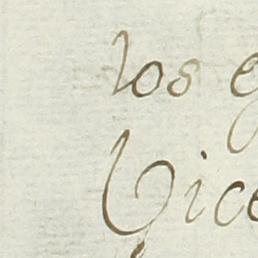 los
Vice